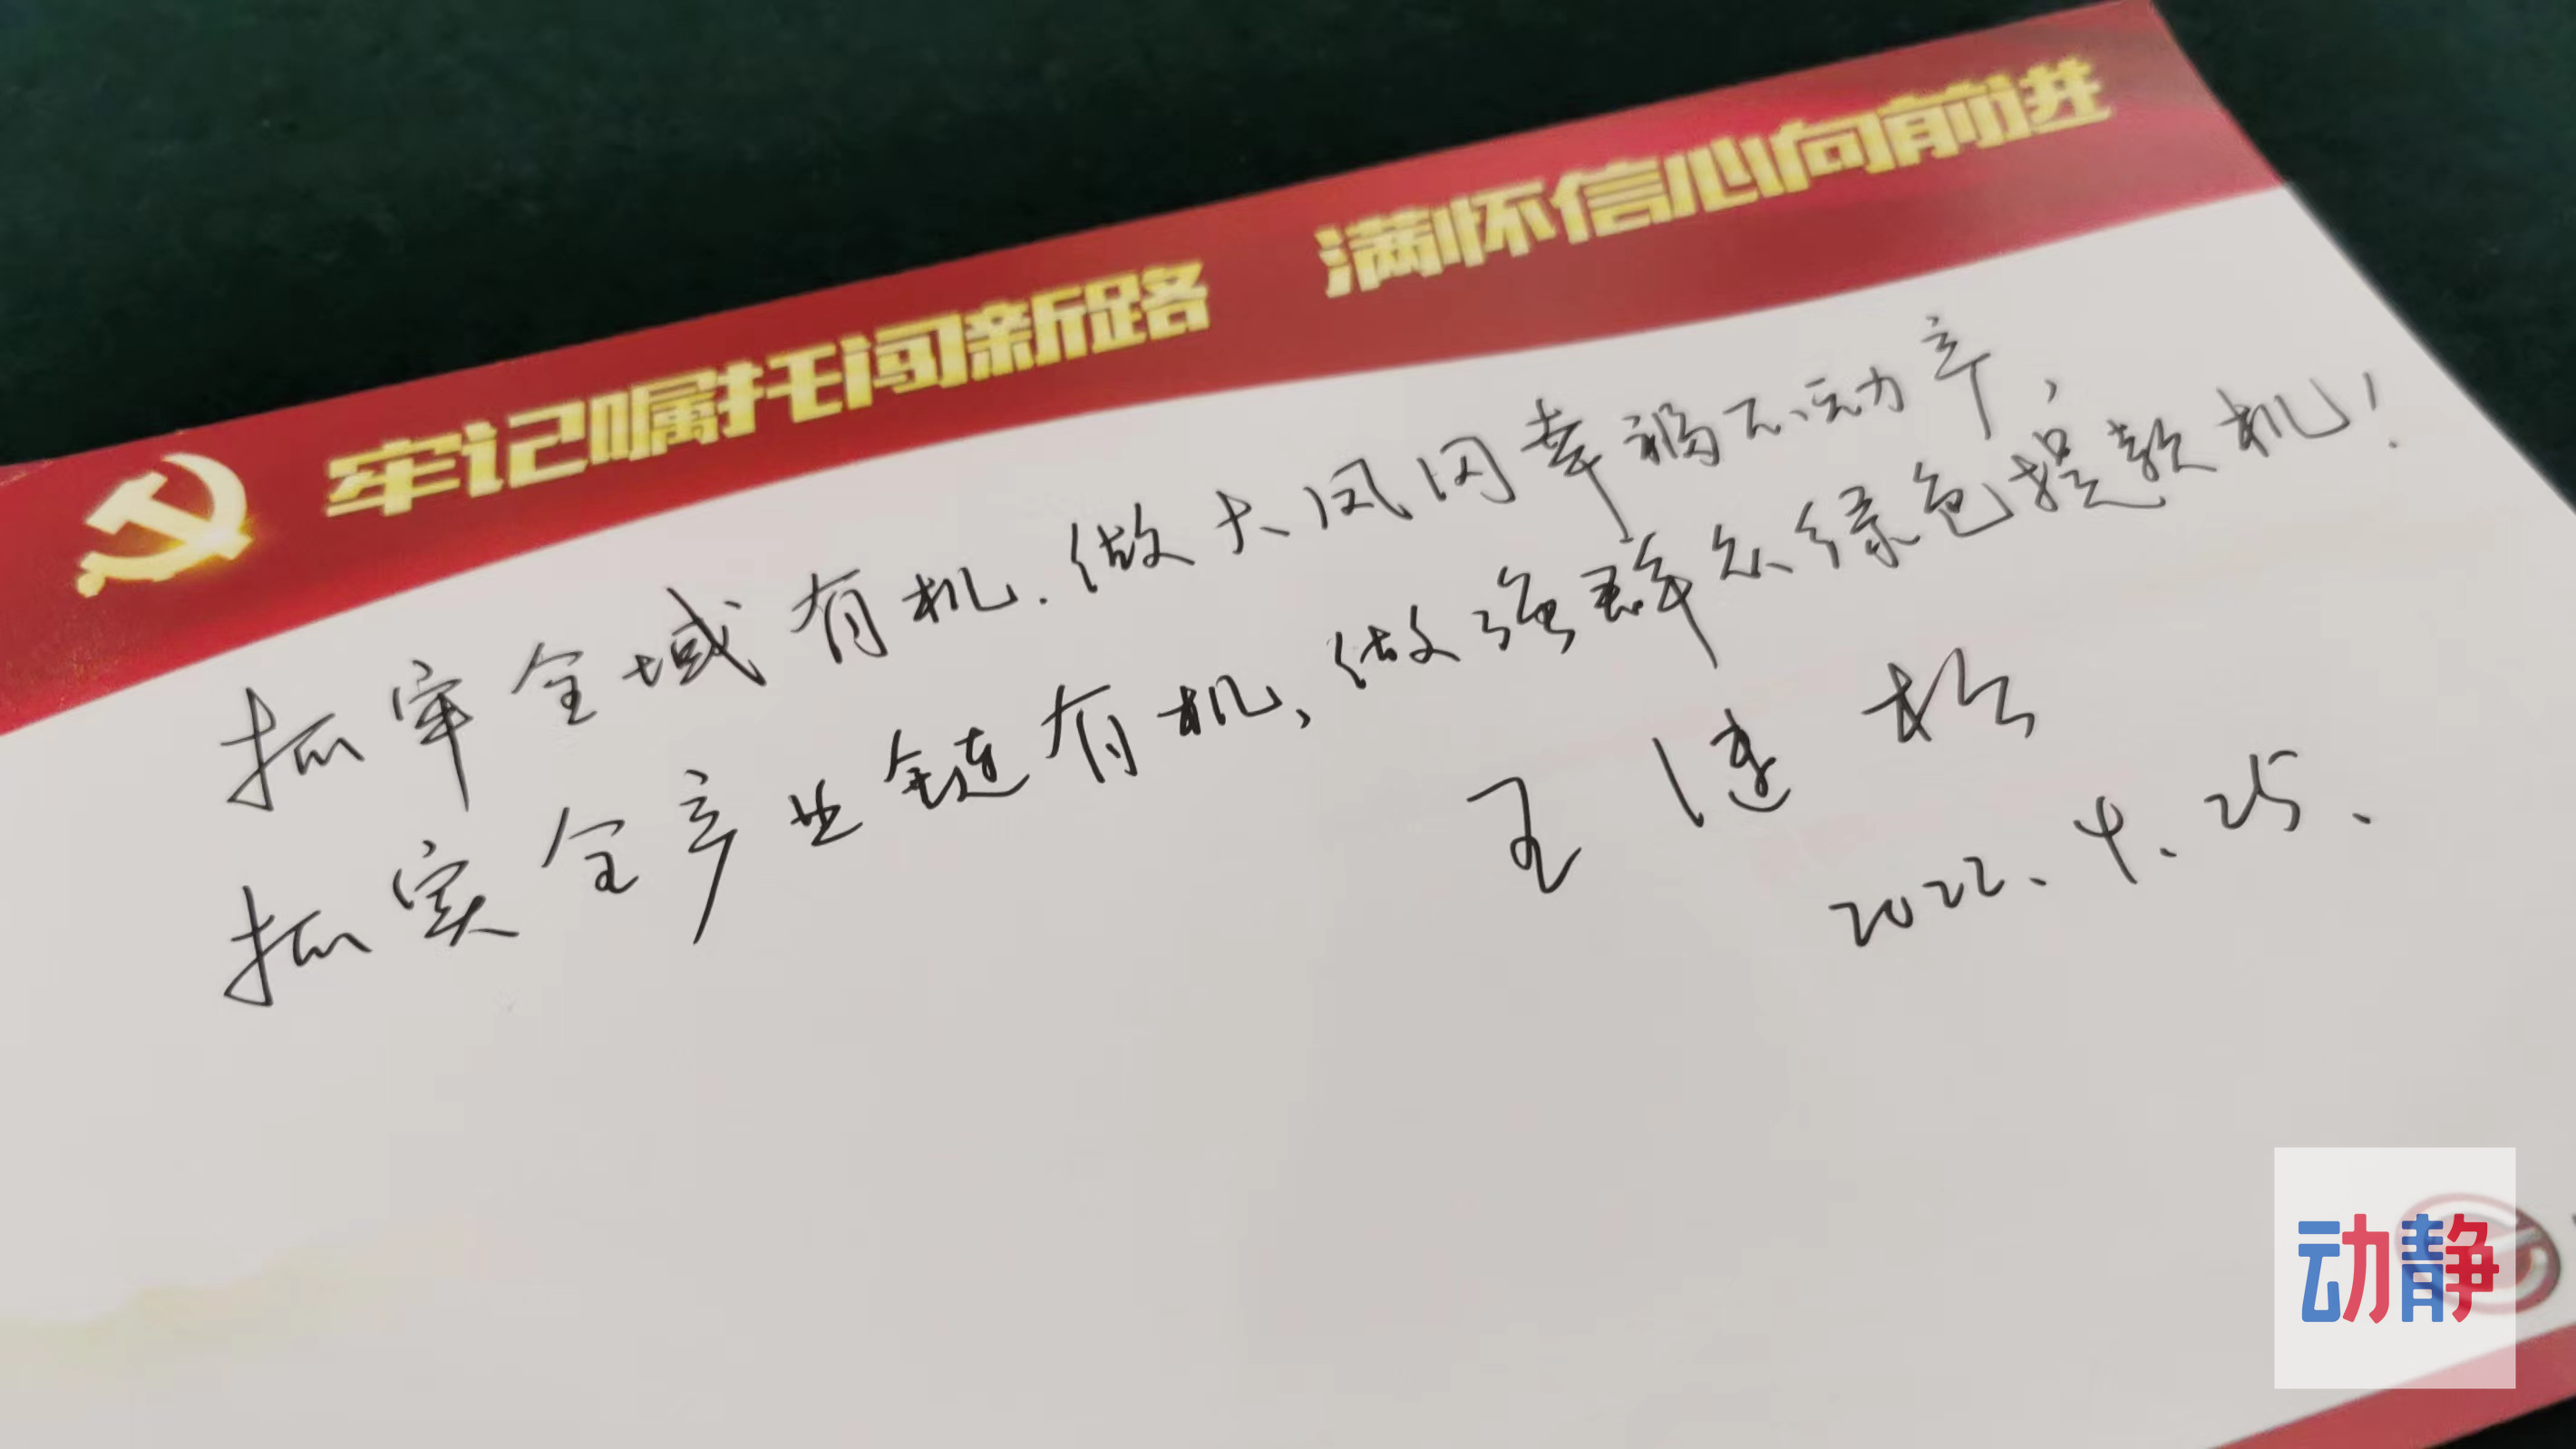 牢记嘱托闯新路 满怀信心向前进
抓牢全域有机.做大凤冈幸福不动产,
抓实全产业链有机,做强群众绿色提款机!
王继松
2022.4.25.
动静